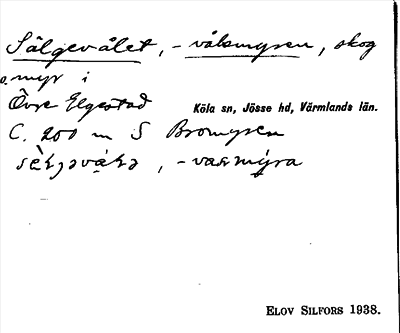 Sälgevålet, - vålsmyren, skog
o. myr i
Övre Elgestad Köla sn, Jösse hd, Värmlands län.
C. 200 m S Bromyren
ELOV SILFORS 1938.